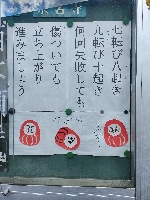 七転び八起き
九転び十起き
何回失敗しても
傷ついても
立ち上がり
進みましょう